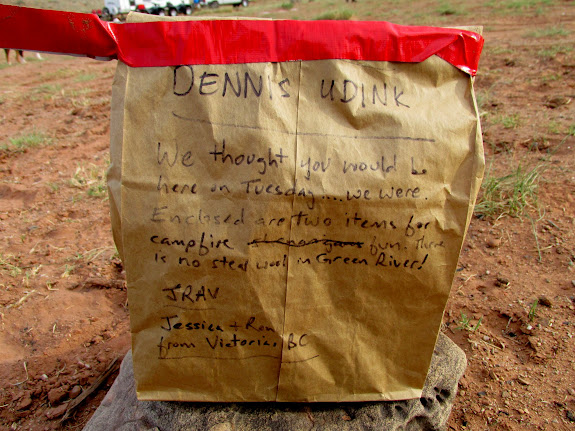 DENNIS UDINK
We thought you would be
here on Tuesday....we were.
Enclosed are two items for
campfire fun. There
is no steel wool in Green River!
JRAV
Jessica + Ron
from Victoria, BC